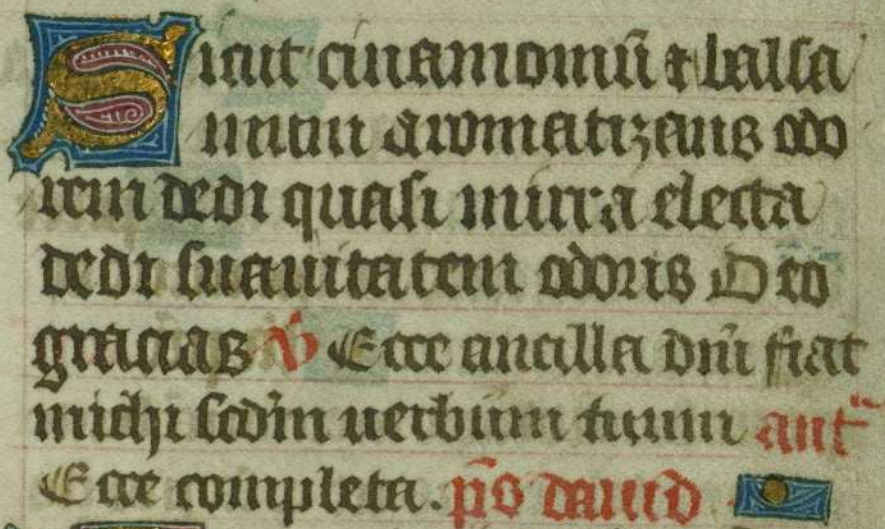 Sicut cinamomū ⁊ balsa
mum aromatizans odo
rem dedi quasi mirra electa
dedi suauitatem odoris Deo
gracias v̄ Ecce ancilla dn̄i fiat
michi scdm̄ uerbum tuum ant̃
Ecce completa. p̄s dauid